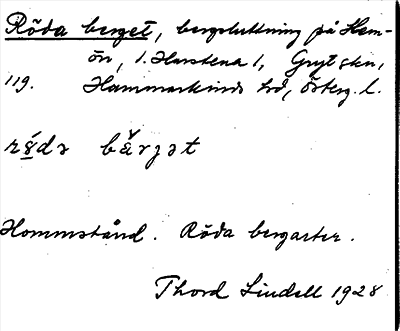 Röda berget, bergsluttning på Hem-
ön, 1. Harstena 1, Gryt skn,
119. Hammarkinds hd, Österg. l.
rö́də bǎrjət
Hommstånd. Röda bergarter.
Thord Lindell 1928